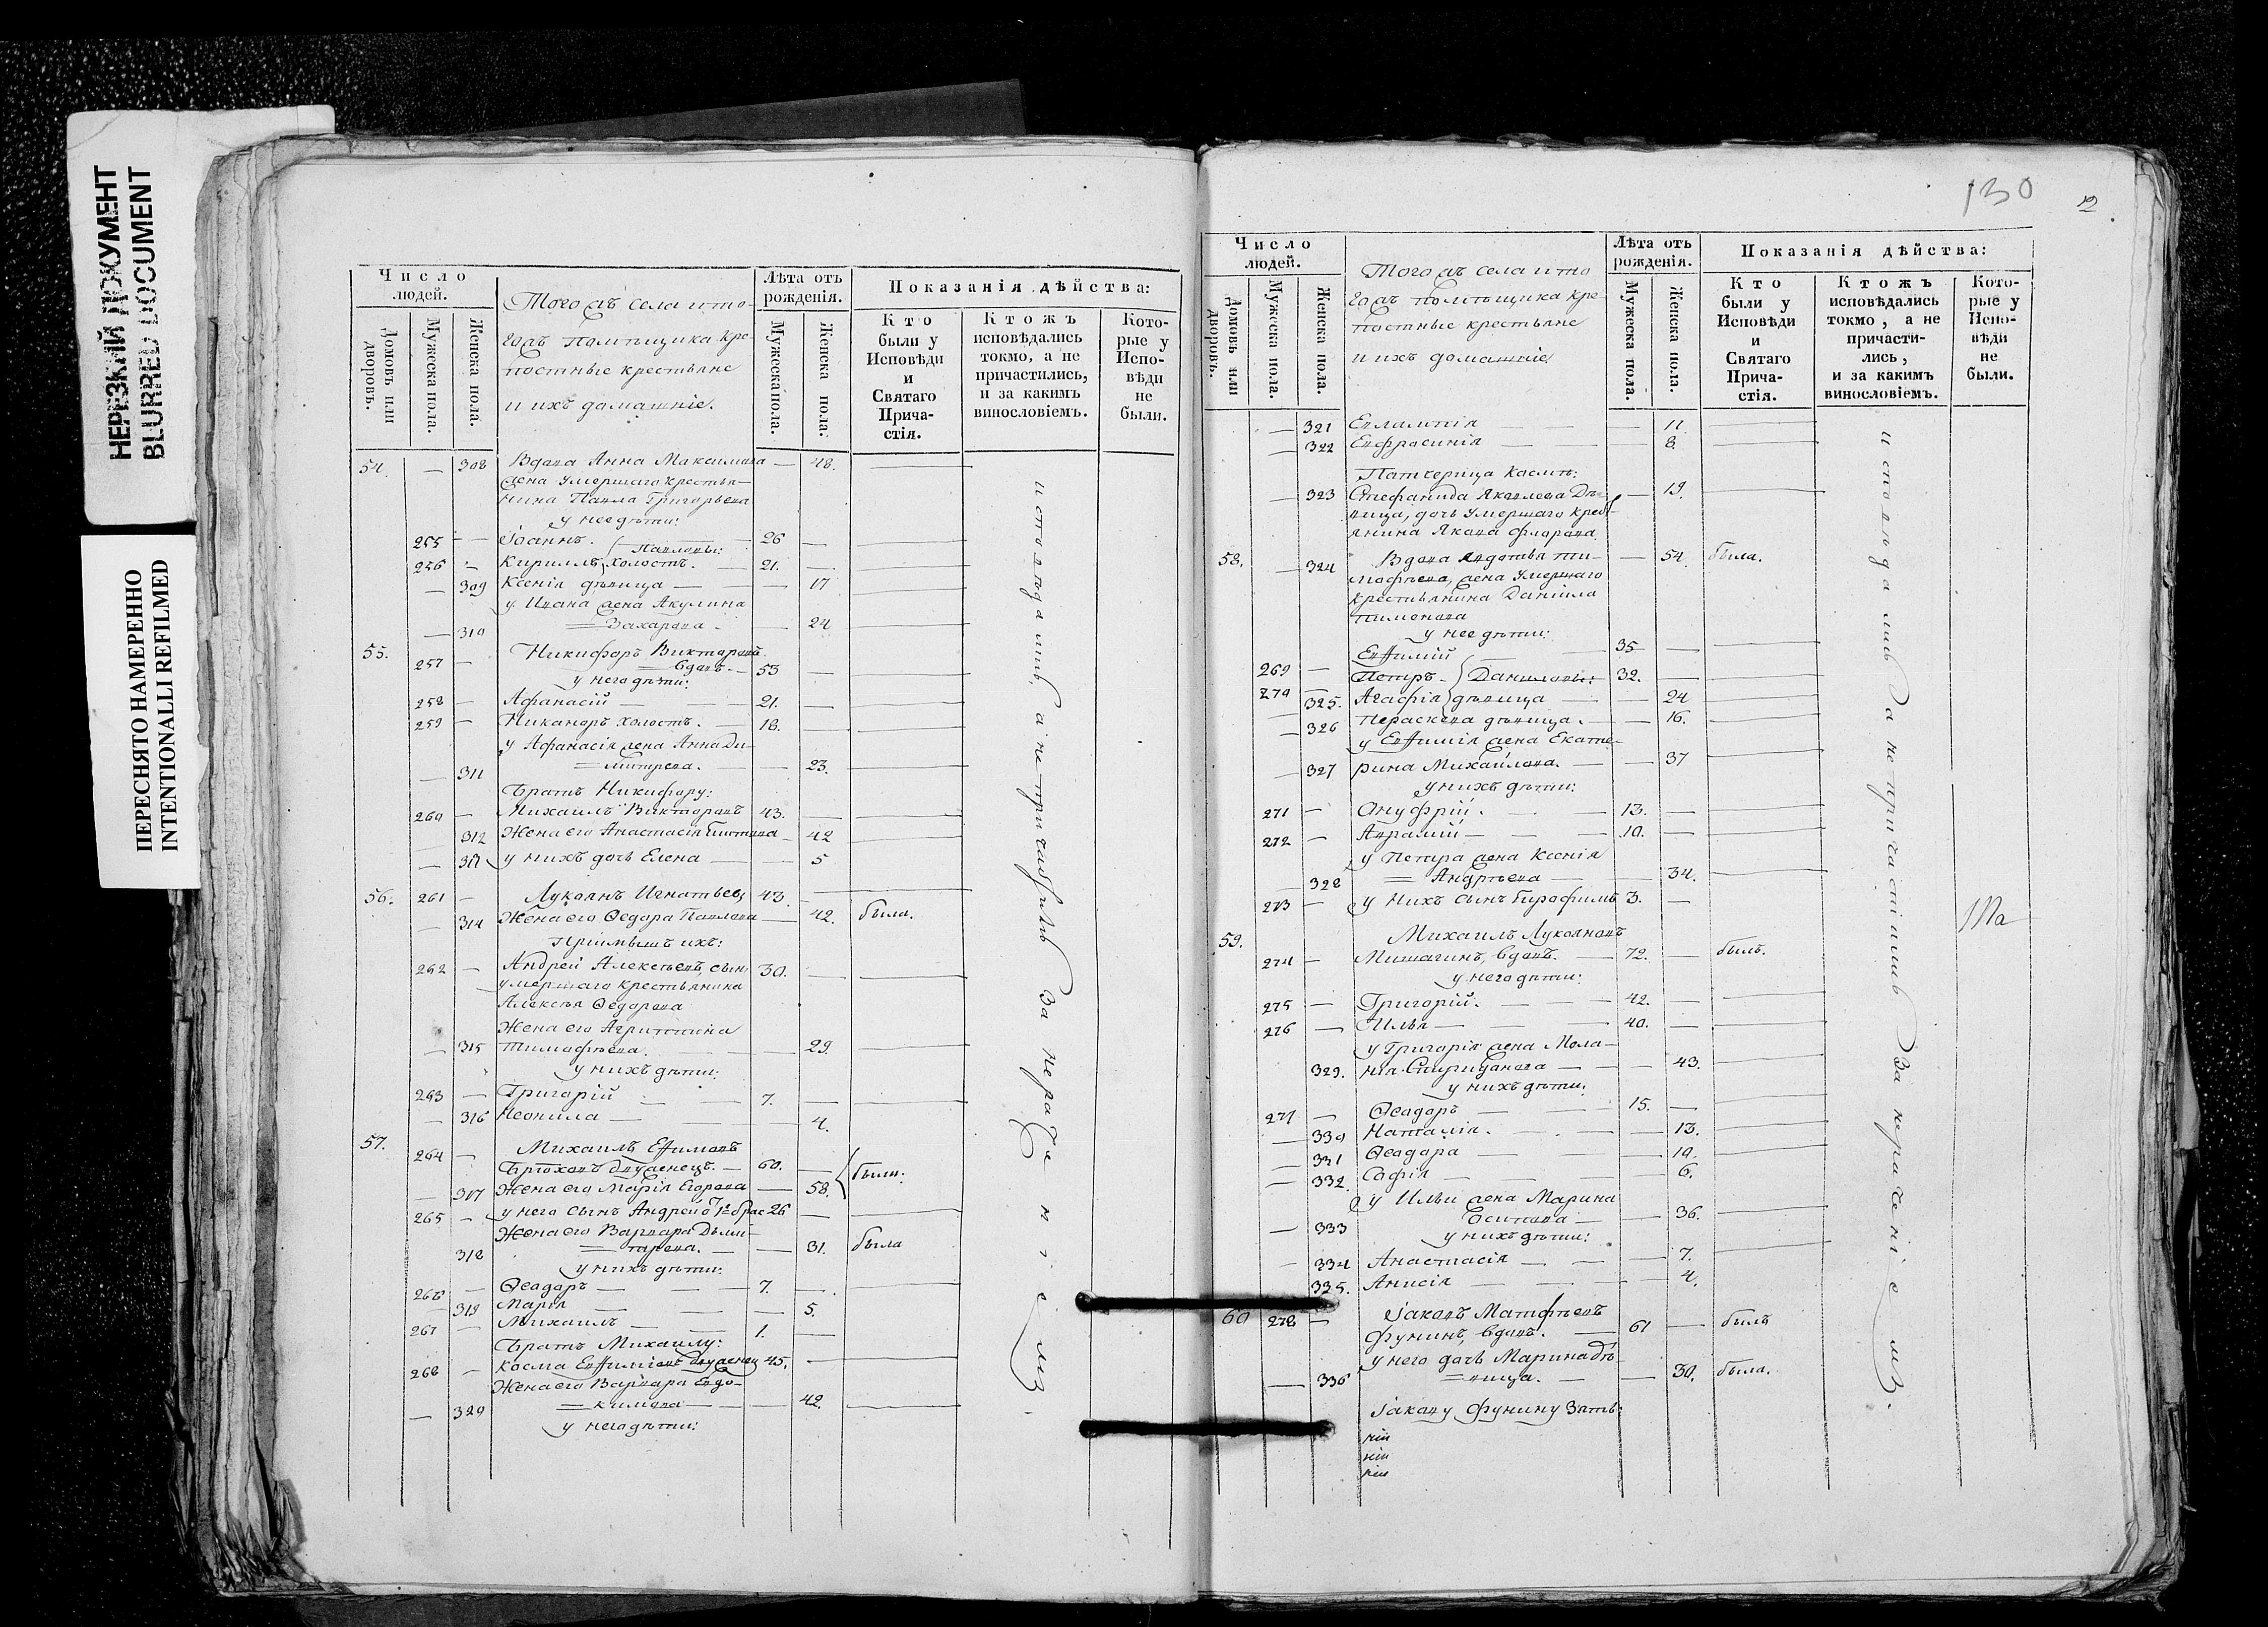 НЕРЕЗКИЙ ДОКУМЕНТ
BLURRED DOCUMENT
ПЕРЕСНЯТО НАМЕРЕННО
INTENTIONALLI REFILMED
Число людей.
Домовъ или дворовъ.
Мужеска пола.
Женска пола.
Тогожъ села и то-
гожъ помѣщика кре-
постные крестьяне
и ихъ домашніе.
Лѣта отъ рожденія.
Мужеска пола.
Женска пола.
Показанія дѣйства:
Кто были у Исповѣди и Святаго Прича-стія.
Ктожъ исповѣдались токмо, а не причастились, и за какимъ винословіемъ.
Кото-рые у Испо-вѣди не были.
54. — 308 Вдова Анна Максимова — 48.
жена умершаго крестья-
нина Павла Григорьева
у нее дѣти:
255 — Іоаннъ. 26 —
Павловы:
256 — Кириллъ холостъ. — 21. —
— 309 Ксенія дѣвица — — 17
у Ивана жена Акулина
— 310 Захарова — — 24
55. Никифоръ Викторовъ
257 — вдовъ — 53 —
у него дѣти:
258 — Афанасій — 21. —
259 — Никаноръ холостъ. — 18. —
у Афанасія жена Анна Ди-
— 311 митрева. — — 23.
Братъ Никифору:
260 — Михаилъ Викторовъ 43. —
312 Жена его Анастасія — 42
— у нихъ дочь Елена — — 5
56. 261 — Лукіянъ Игнатьевъ 43. —
— 314 Жена его Ѳедора Павлова — 42. была.
Пріимышъ ихъ:
262 — Андрей Алексѣевъ, сынъ 30. —
умершаго крестьянина
Алексѣя Ѳедорова
Жена его Агриппина
— 315 Тимофѣева. — — 29.
у нихъ дѣти:
263 — Григорій — 7. —
— 316 Неонила — — 4.
57. Михаилъ Ефимовъ
264 — двуженецъ. — 60. —
были:
— 317 Жена его Марія Егорова — 58.
265 — у него сынъ Андрей 26 —
Жена его Варвара Дьми-
318 трева. — — 31. была
у нихъ дѣти:
266 — Ѳеодоръ — 7. —
— 319 Марія — — 5.
267 — Михаилъ — 1. —
Братъ Михаилу:
268 — Косма Евфиміевъ двуженецъ 45.
Жена его Варвара Евдо-
— 320 кимова — — 42.
у него дѣти:
исповѣдались а не причастились За нераченіемъ.
130
12
Число людей.
Домовъ или дворовъ.
Мужеска пола.
Женска пола.
Тогожъ села и то
гожъ помѣщика кре-
постные крестьяне
и ихъ домашніе
Лѣта отъ рожденія.
Мужеска пола.
Женска пола.
Показанія дѣйства:
Кто были у Исповѣди и Святаго Прича-стія.
Ктожъ исповѣдались токмо, а не причасти-лись, и за какимъ винословіемъ.
Кото-рые у Испо-вѣди не были.
— 321 Евлампія — — 11
— 322 Евфросинія — — 8.
Патчерица Космѣ:
— 323 Стефанида Яковлева Дѣ- — 19.
вица, дочь умершаго крес-
янина Якова Фролова
58. — 324 Вдова Авдотья Ти- — 54. была.
мофѣева, жена умершаго
крестьянина Даніила
Тимонова
у нее дѣти:
269 — Евфимій — 35 —
270 — Петръ — Даниловы: 32. —
325. Агафія дѣвица — — 24
— 326 Пераскева дѣвица. — — 16.
у Евфимія жена Екате-
— 327 рина Михайлова. — — 37
у нихъ дѣти:
271 — Онуфрій. — 13. —
272 — Аврамій — 10. —
у Петра жена Ксенія
— 328 Андрѣева — — 34.
273 — у нихъ сынъ 3. —
59. Михаилъ Лукіяновъ
274 — Мишагинъ, вдовъ. — 72. — былъ.
у него дѣти:
275 — Григорій. — 42. —
276 — Илья — 40. —
у Григорія жена Мела-
329. нія Спиридонова — — 43.
у нихъ дѣти:
277 — Ѳеодоръ — 15. —
— 330 Наталія. — — 13.
— 331 Ѳеодора — — 10.
— 332. Софія — — 6.
у Ильи жена Марина
— 333 Осипова — — 36.
у нихъ дѣти:
— 334 Анастасія — — 7.
335. Анисія — — 4.
60 278 — Іаковъ Матфѣевъ
Фунинъ, вдовъ. — 61 — былъ
у него дочь Марина дѣ-
— 336 вица. — — 30. была.
Іакову Фунину Зять:
исповѣдались а не причастились За нераченіемъ.